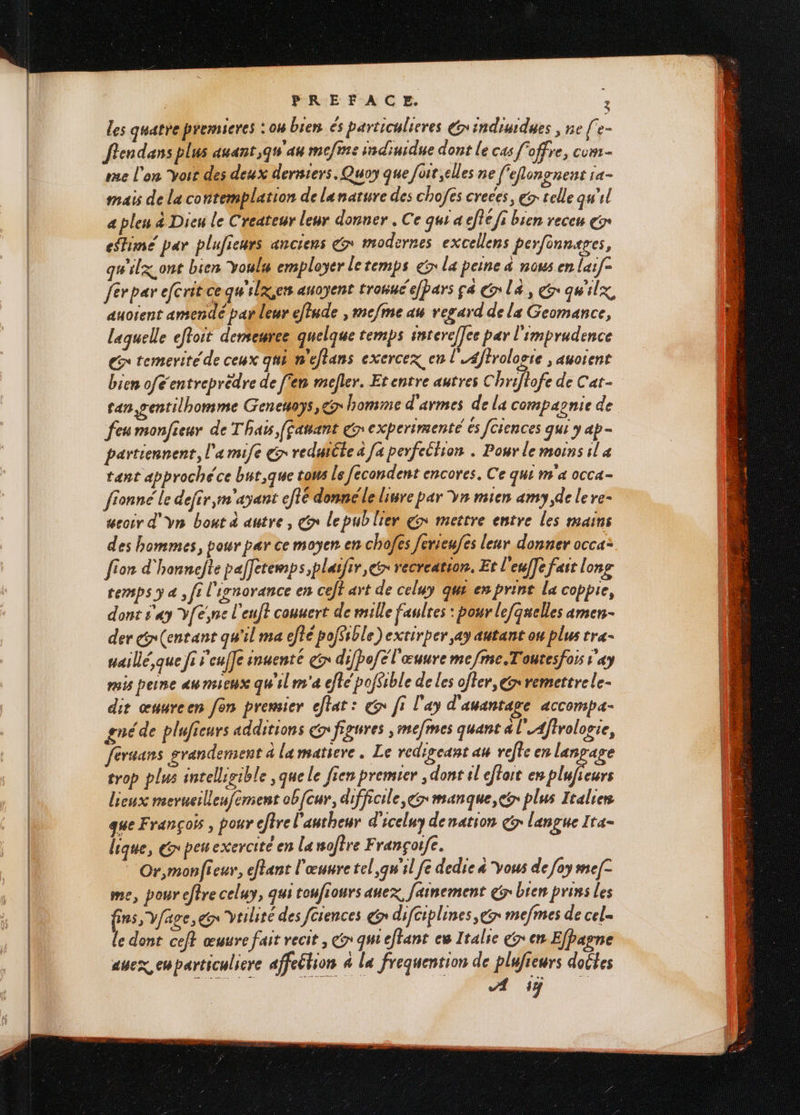 PREFACE. 3
les quatre premieres : ou bien és particulieres & indiuidues , ne s'e-
stendans plus auant, qu'au mesme indiuidue dont le cas s'offre, com-
me l'on voit des deux derniers. Quoy que soit, elles ne s'eslongnent ia-
mais de la contemplation de la nature des choses creées, & telle qu'il
a pleu à Dieu le Createur leur donner . Ce qui a esté si bien receu &
estimé par plusieurs anciens & modernes excellens personnages,
qu'ilz ont bien voulu employer le temps & la peine à nous en lais-
ser par escrit ce qu'ilz en auoyent trouué espars çà & là , & qu'ilz
auoient amendé par leur estude , mesme au regard de la Geomance,
laquelle estoit demeuree quelque temps interessee par l'imprudence
& temerité de ceux qui n'estans exercez en l'Astrologie , auoient
bien osé entreprēdre de s'en mesler. Et entre autres Christofe de Cat-
tan, gentilhomme Geneuoys, & homme d'armes de la compagnie de
feu monsieur de Thais, sçauant & experimenté és sciences qui y ap-
partiennent, l'a mise & reduicte à sa perfection . Pour le moins il a
tant approché ce but, que tous le secondent encores. Ce qui m'a occa-
sionné le desir, m'ayant esté donné le liure par vn mien amy, de le re-
ueoir d'vn bout à autre , & le publier & mettre entre les mains
des hommes, pour par ce moyen en choses serieuses leur donner occa-
sion d'honneste passetemps, plaisir, & recreation. Et l'eusse fait long
temps y a , si l'ignorance en cest art de celuy qui en print la coppie,
dont i'ay vsé, ne l'eust couuert de mille faultes : pour lesquelles amen-
der & (entant qu'il ma esté possible) extirper, ay autant ou plus tra-
uaillé, que si i'eusse inuenté & disposé l'œuure mesme. Toutesfois i'ay
mis peine au mieux qu'il m'a esté possible de les oster, & remettre le-
dit œuure en son premier estat : & si l'ay d'auantage accompa-
gné de plusieurs additions & figures , mesmes quant à l'Astrologie,
seruans grandement à la matiere . Le redigeant au reste en langage
trop plus intelligible , que le sien premier , dont il estoit en plusieurs
lieux merueilleusement obscur, difficile, & manque, & plus Italien
que François , pour estre l'autheur d'iceluy de nation & langue Ita-
lique, & peu exercité en la nostre Françoise.
Or, monsieur, estant l'œuure tel, qu'il se dedie à vous de soy mes-
me, pour estre celuy, qui tousiours auez, sainement & bien prins les
fins, vsage, & vtilité des sciences & disciplines, & mesmes de cel-
le dont cest œuure fait recit , & qui estant en Italie & en Espagne
auez eu particuliere affection à la frequention de plusieurs doctes
A iij